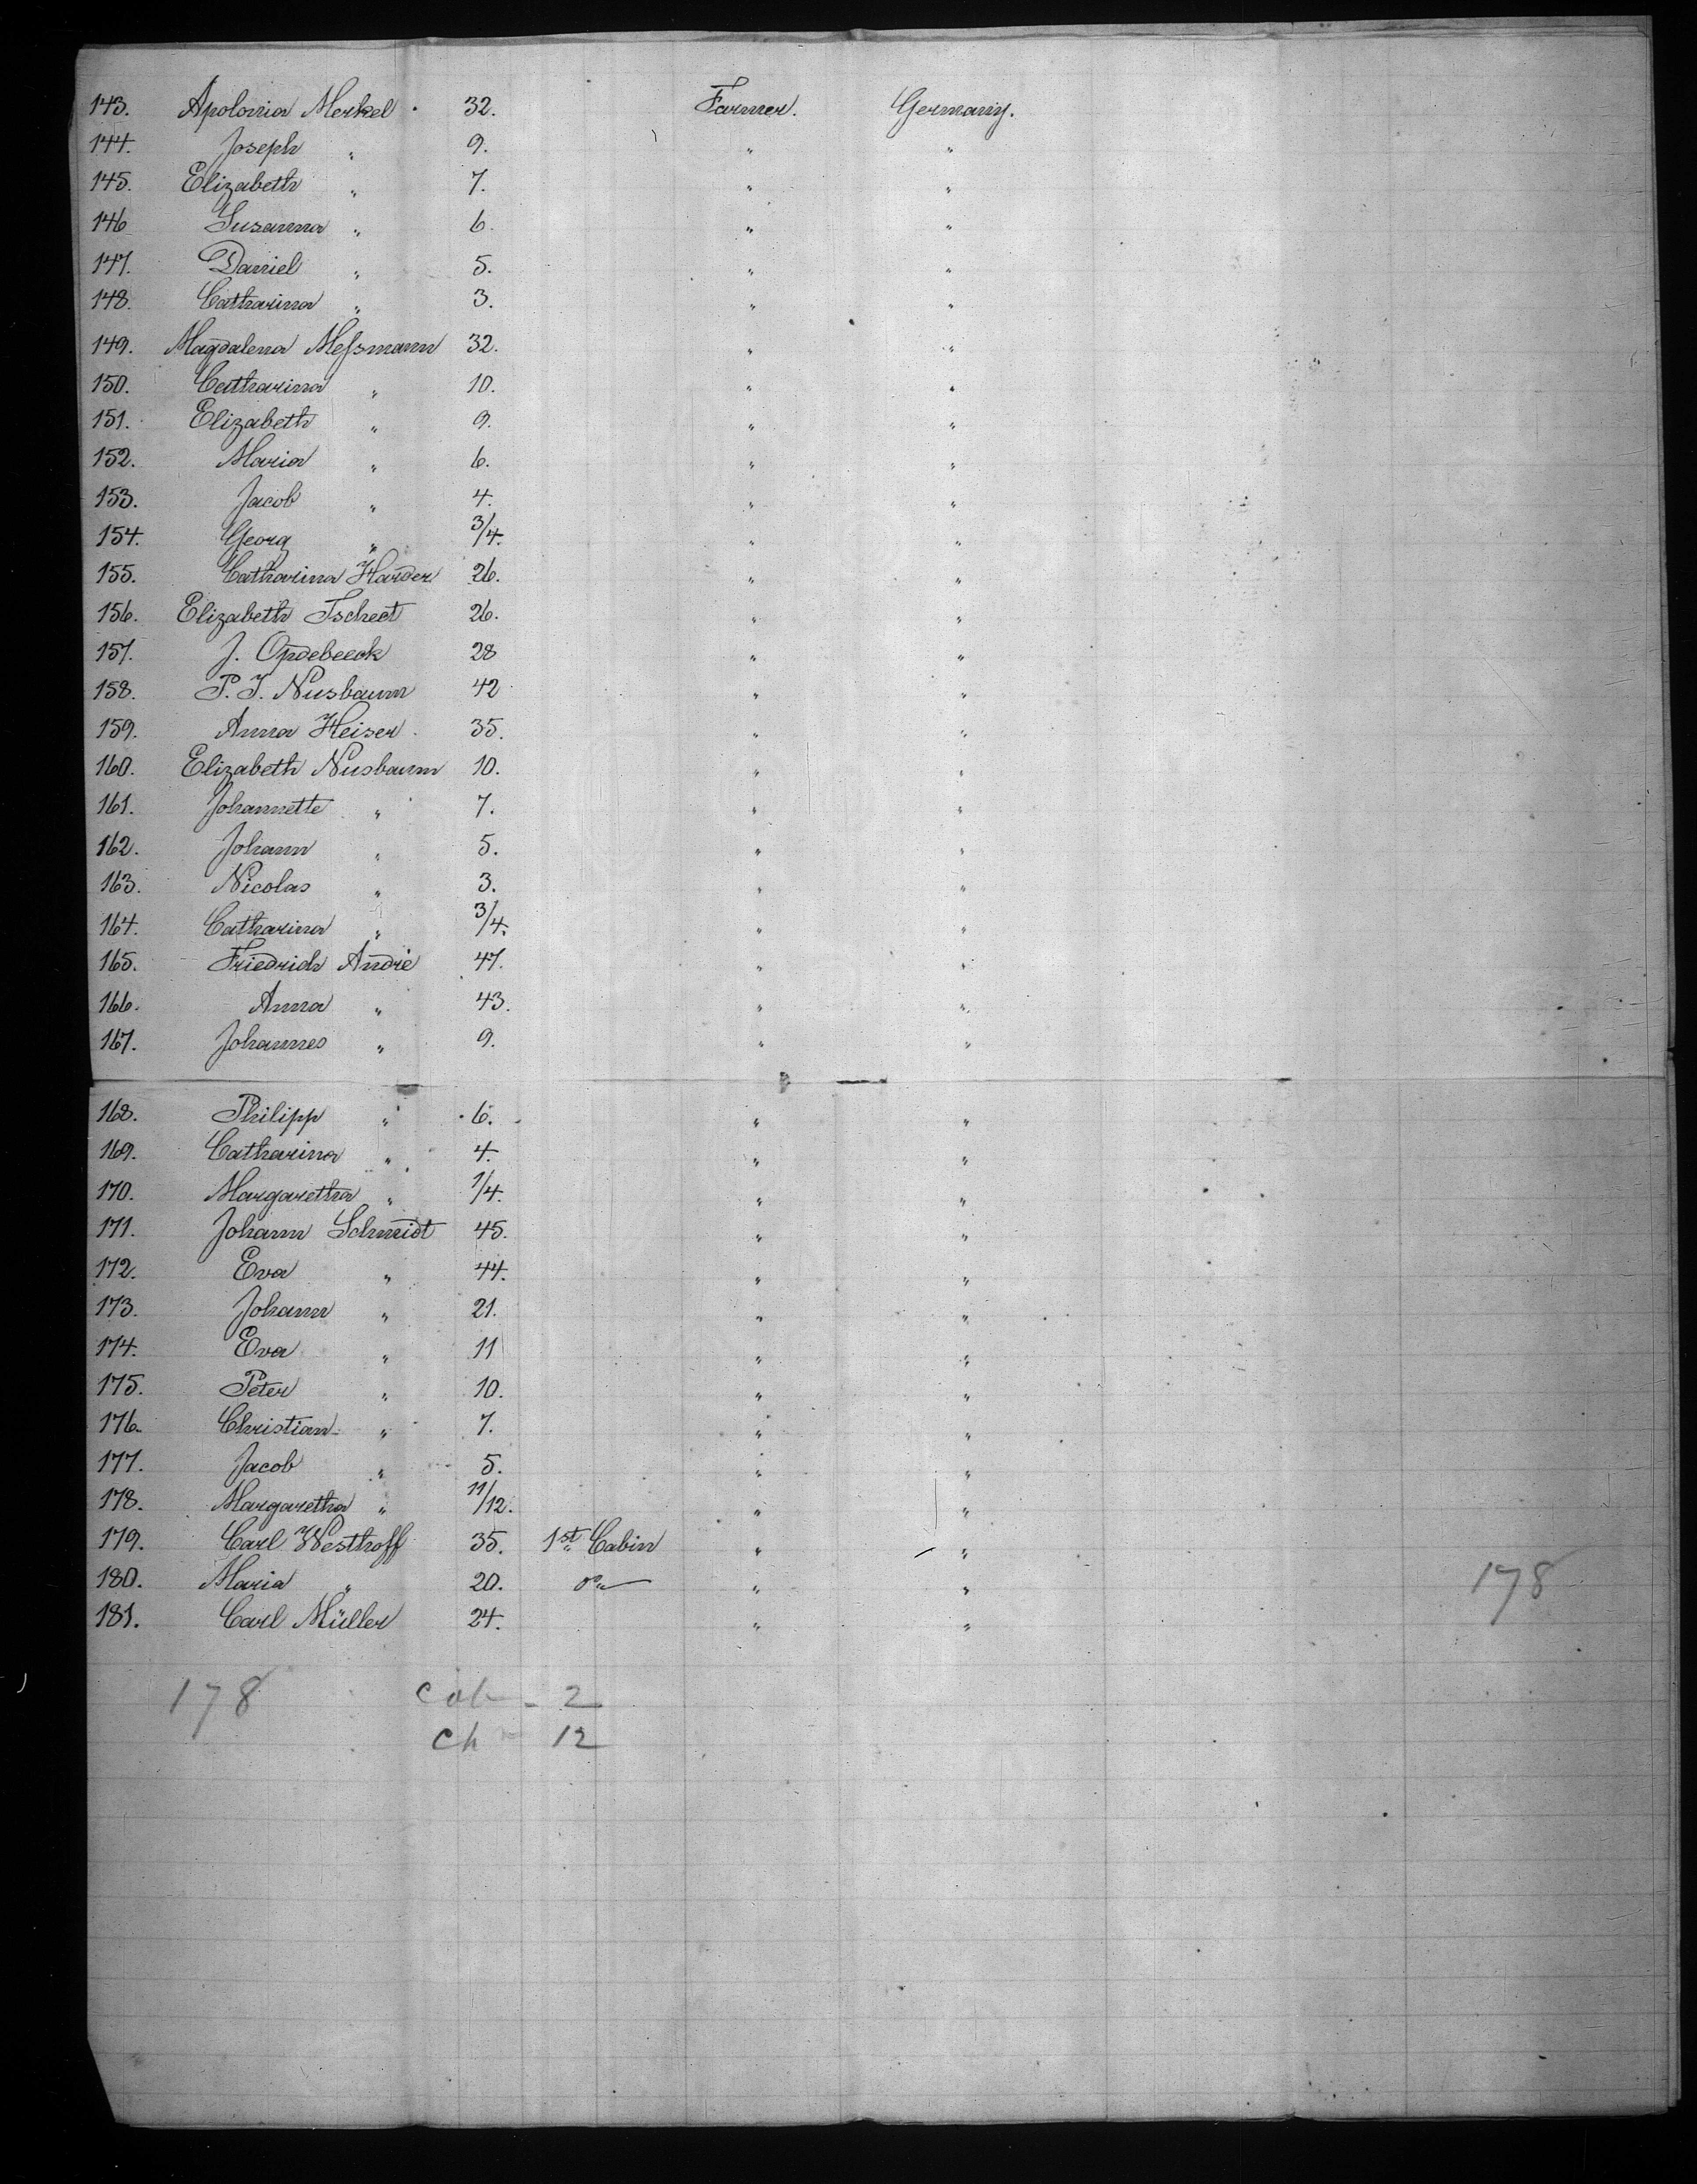 143. Apolonia Merkel 32. Farmer. Germany.
144. Joseph " 9. " "
145. Elizabeth " 7. " "
146 Susanna " 6. " "
147. Daniel " 5. " "
148. Catharina " 3. " "
149. Magdalena Meſsmann 32. " "
150. Catharina " 10. " "
151. Elizabeth " 9. " "
152. Maria " 6. " "
153. Jacob " 4. " "
154. Georg " 3/4. " "
155. Catharina Harder 26. " "
156. Elizabeth Tscheet 26. " "
157. J. Opdebeeck 28 " "
158. P. J. Nusbaum 42 " "
159. Anna Heiser 35. " "
160. Elizabeth Nusbaum 10. " "
161. Johannette " 7. " "
162. Johann " 5. " "
163. Nicolas " 3. " "
164. Catharina " 3/4. " "
165. Friedrich André 47. " "
166. Anna " 43. " "
167. Johannes " 9. " "
168. Philipp " 6. " "
169. Catharina " 4. " "
170. Margaretha " 1/4. " "
171. Johann Schmidt 45. " "
172. Eva " 44. " "
173. Johann " 21. " "
174. Eva " 11 " "
175. Peter " 10. " "
176. Christian " 7. " "
177. Jacob " 5. " "
178. Margaretha " 11/12. " "
179. Carl Westhoff 35. 1st Cabin " "
180. Maria " 20. do " " 178
181. Carl Müller 24. " "
178 Cab - 2
Ch - 12